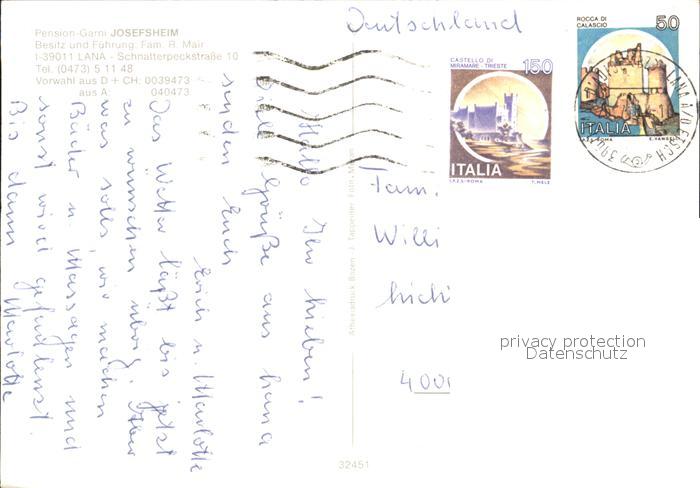 Pension-Garni JOSEFSHEIM
Besitz und Führung: Fam. R. Mair
I-39011 LANA - Schnatterpeckstraße 10
Tel. (0473) 5 11 48
Vorwahl aus D + CH: 0039473
aus A: 040473
Hallo Ihr Lieben!
Viele Grüße aus Lana
senden Euch
Erich u. Marlotte
Das Wetter läßt bis jetzt
zu wünschen übrig. Aber
was solls, wir machen
Bäder u. Massagen und
sonst wird gefaulenzt.
Bis dann Marlotte
Athesiadruck Bozen - J. Tappeiner Foto, Meran
32451
Deutschland
CASTELLO DI
MIRAMARE - TRIESTE
150
ITALIA
I.P.Z.S. - ROMA
T. MELE
ROCCA DI
CALASCIO
50
ITALIA
I.P.Z.S. - ROMA
Fam.
Willi
Michi
4000
privacy protection
Datenschutz